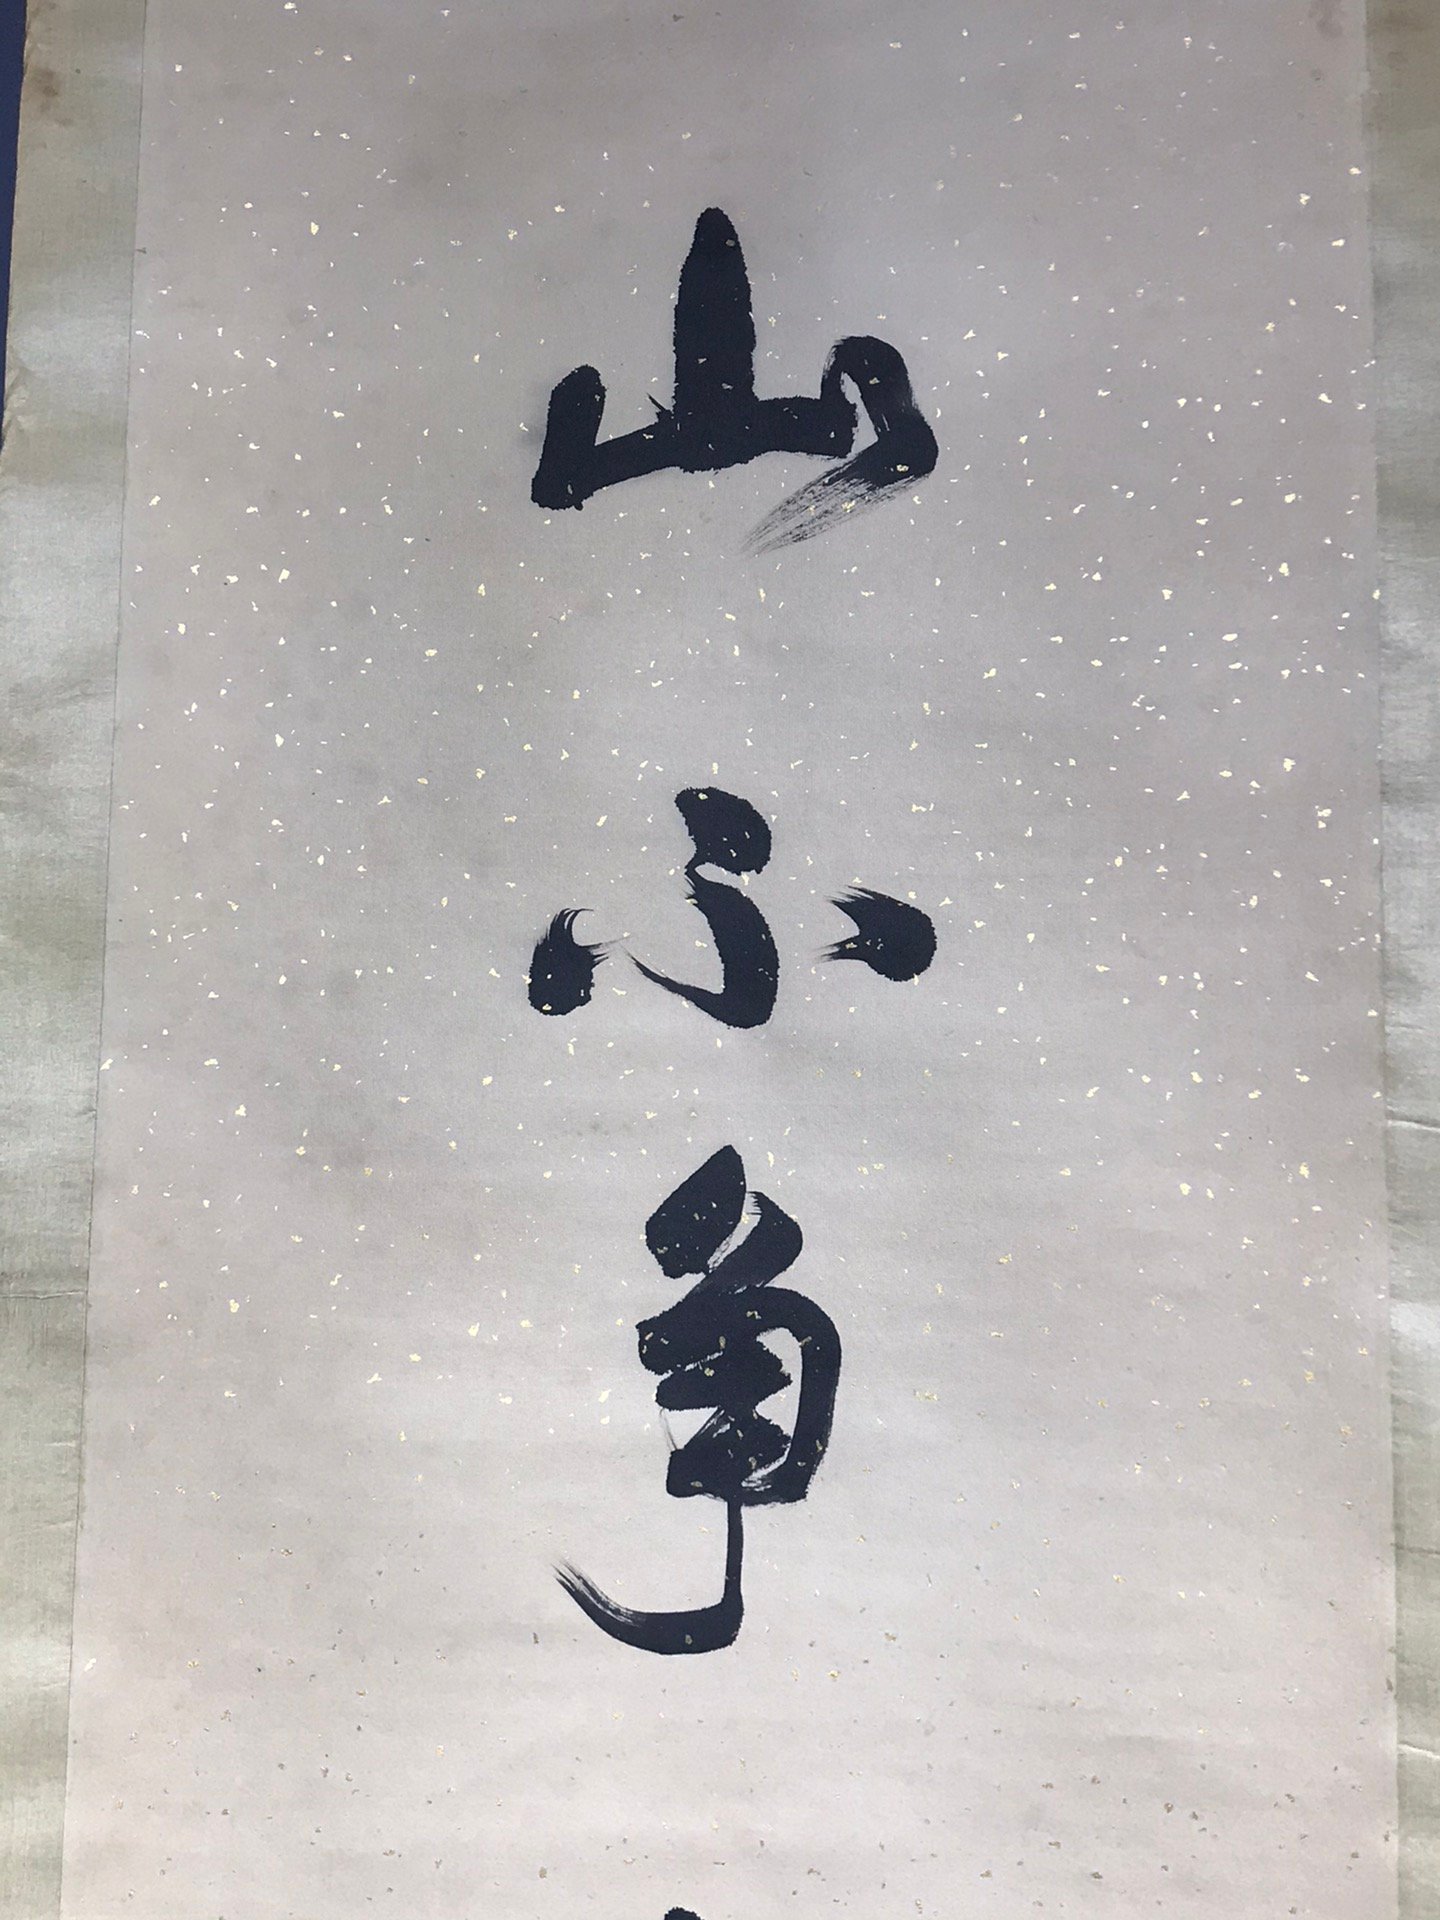 山不争